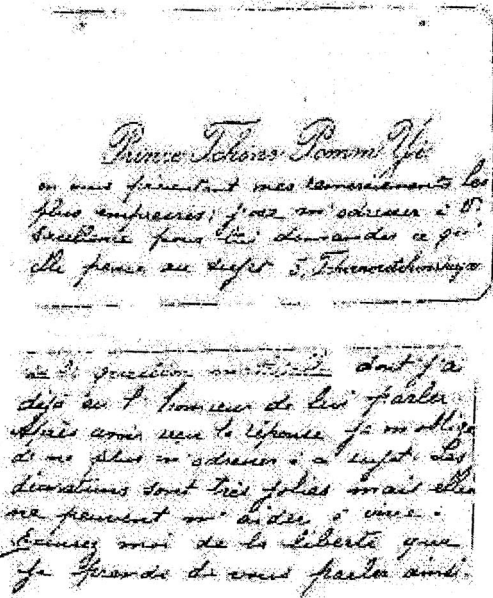 Prince Tchons Pomm Yi
en vous présentant mes remerciements les
plus empressés, j'ose m'adresser à V.
Excellence pour lui demander ce qu'
elle pense au sujet 5, Tchernetchevskaya
la question dont j'a
déjà eu l'honneur de lui parler
Après avoir reçu la réponse je m'oblige
de ne plus m'adresser à ce sujet. Les
décorations sont très jolies mais elles
ne peuvent m'aider à vivre.
Excusez moi de la liberté que
je prends de vous parler ainsi.